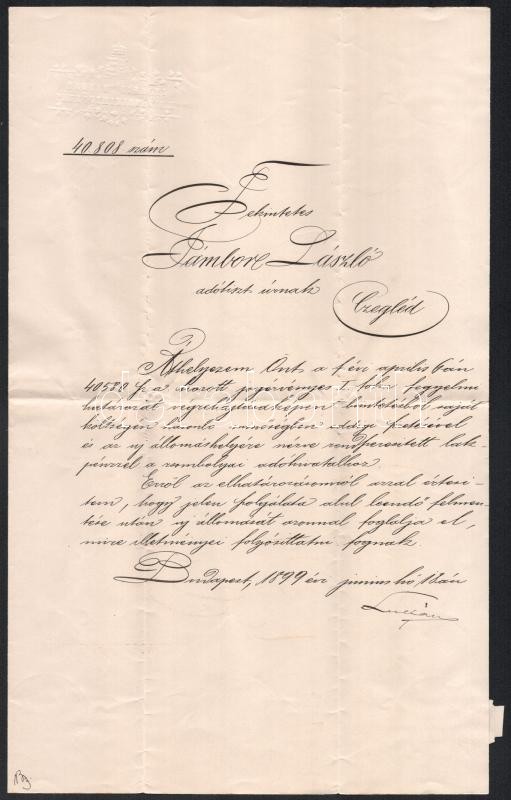 40.808 szám
Tekintetes
Jámbor László
adótiszt úrnak
Czegléd
Áthelyezem Önt a f. évi április 6án
40582 sz. a. hozott jogérvényes I. fokú fegyelmi
határozat végrehajtásaképen büntetésből saját
költségén hasonló minőségben eddigi fizetésével
és az uj állomáshelyére nézve rendszeresített lak-
pénzzel a zsombolyai adóhivatalhoz.
Erről az elhatározásomról azzal értesi-
tem, hogy jelen szolgálata alul leendő felmen-
tése után uj állomását azonnal foglalja el,
mire illetményei folyósíttatni fognak.
Budapest, 1899 évi junius hó 12én